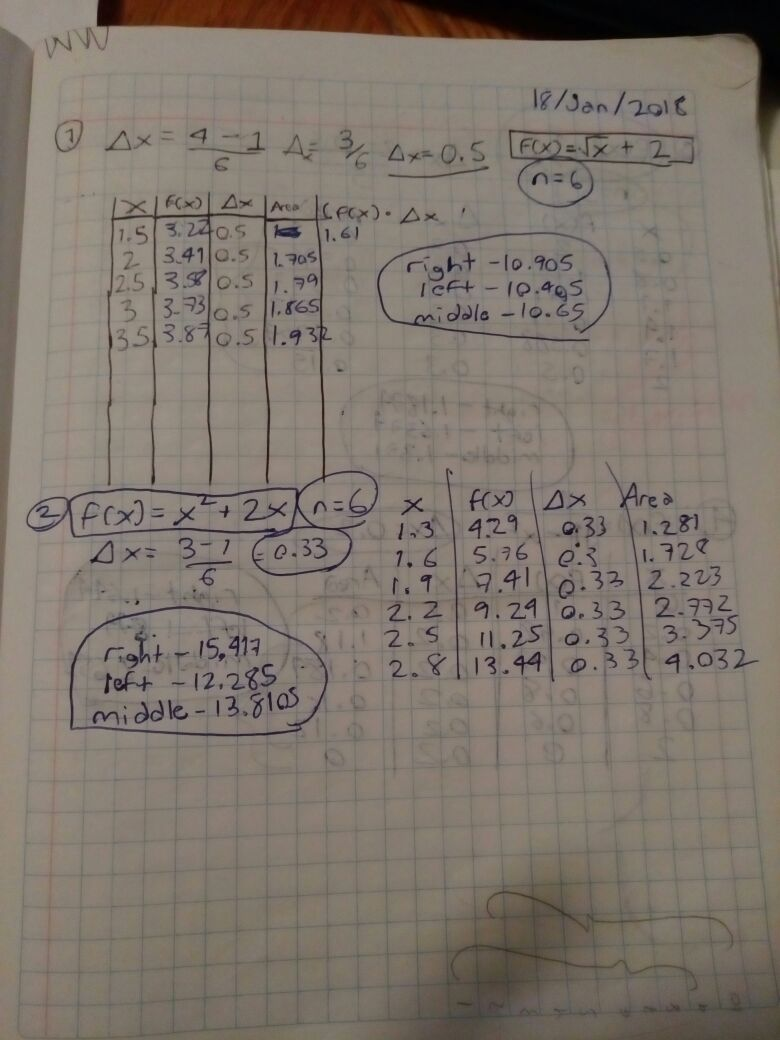 WW
18/Jan/2018
① Δx = 4-1/6 Δx = 3/6 Δx = 0.5 F(x)=√x + 2
n=6
X F(x) Δx Area (f(x) · Δx
1.5 3.22 0.5 1.61
2 3.41 0.5 1.705
2.5 3.58 0.5 1.79
3 3.73 0.5 1.865
3.5 3.87 0.5 1.932
right - 10.905
left - 10.405
middle - 10.65
② f(x) = x² + 2x n=6
Δx = 3-1/6 = 0.33
right - 15,417
left - 12.285
middle - 13.8105
x f(x) Δx Area
1.3 4.29 0.33 1.281
1.6 5.76 0.3 1.728
1.9 7.41 0.33 2.223
2.2 9.24 0.33 2.772
2.5 11.25 0.33 3.375
2.8 13.44 0.33 4.032